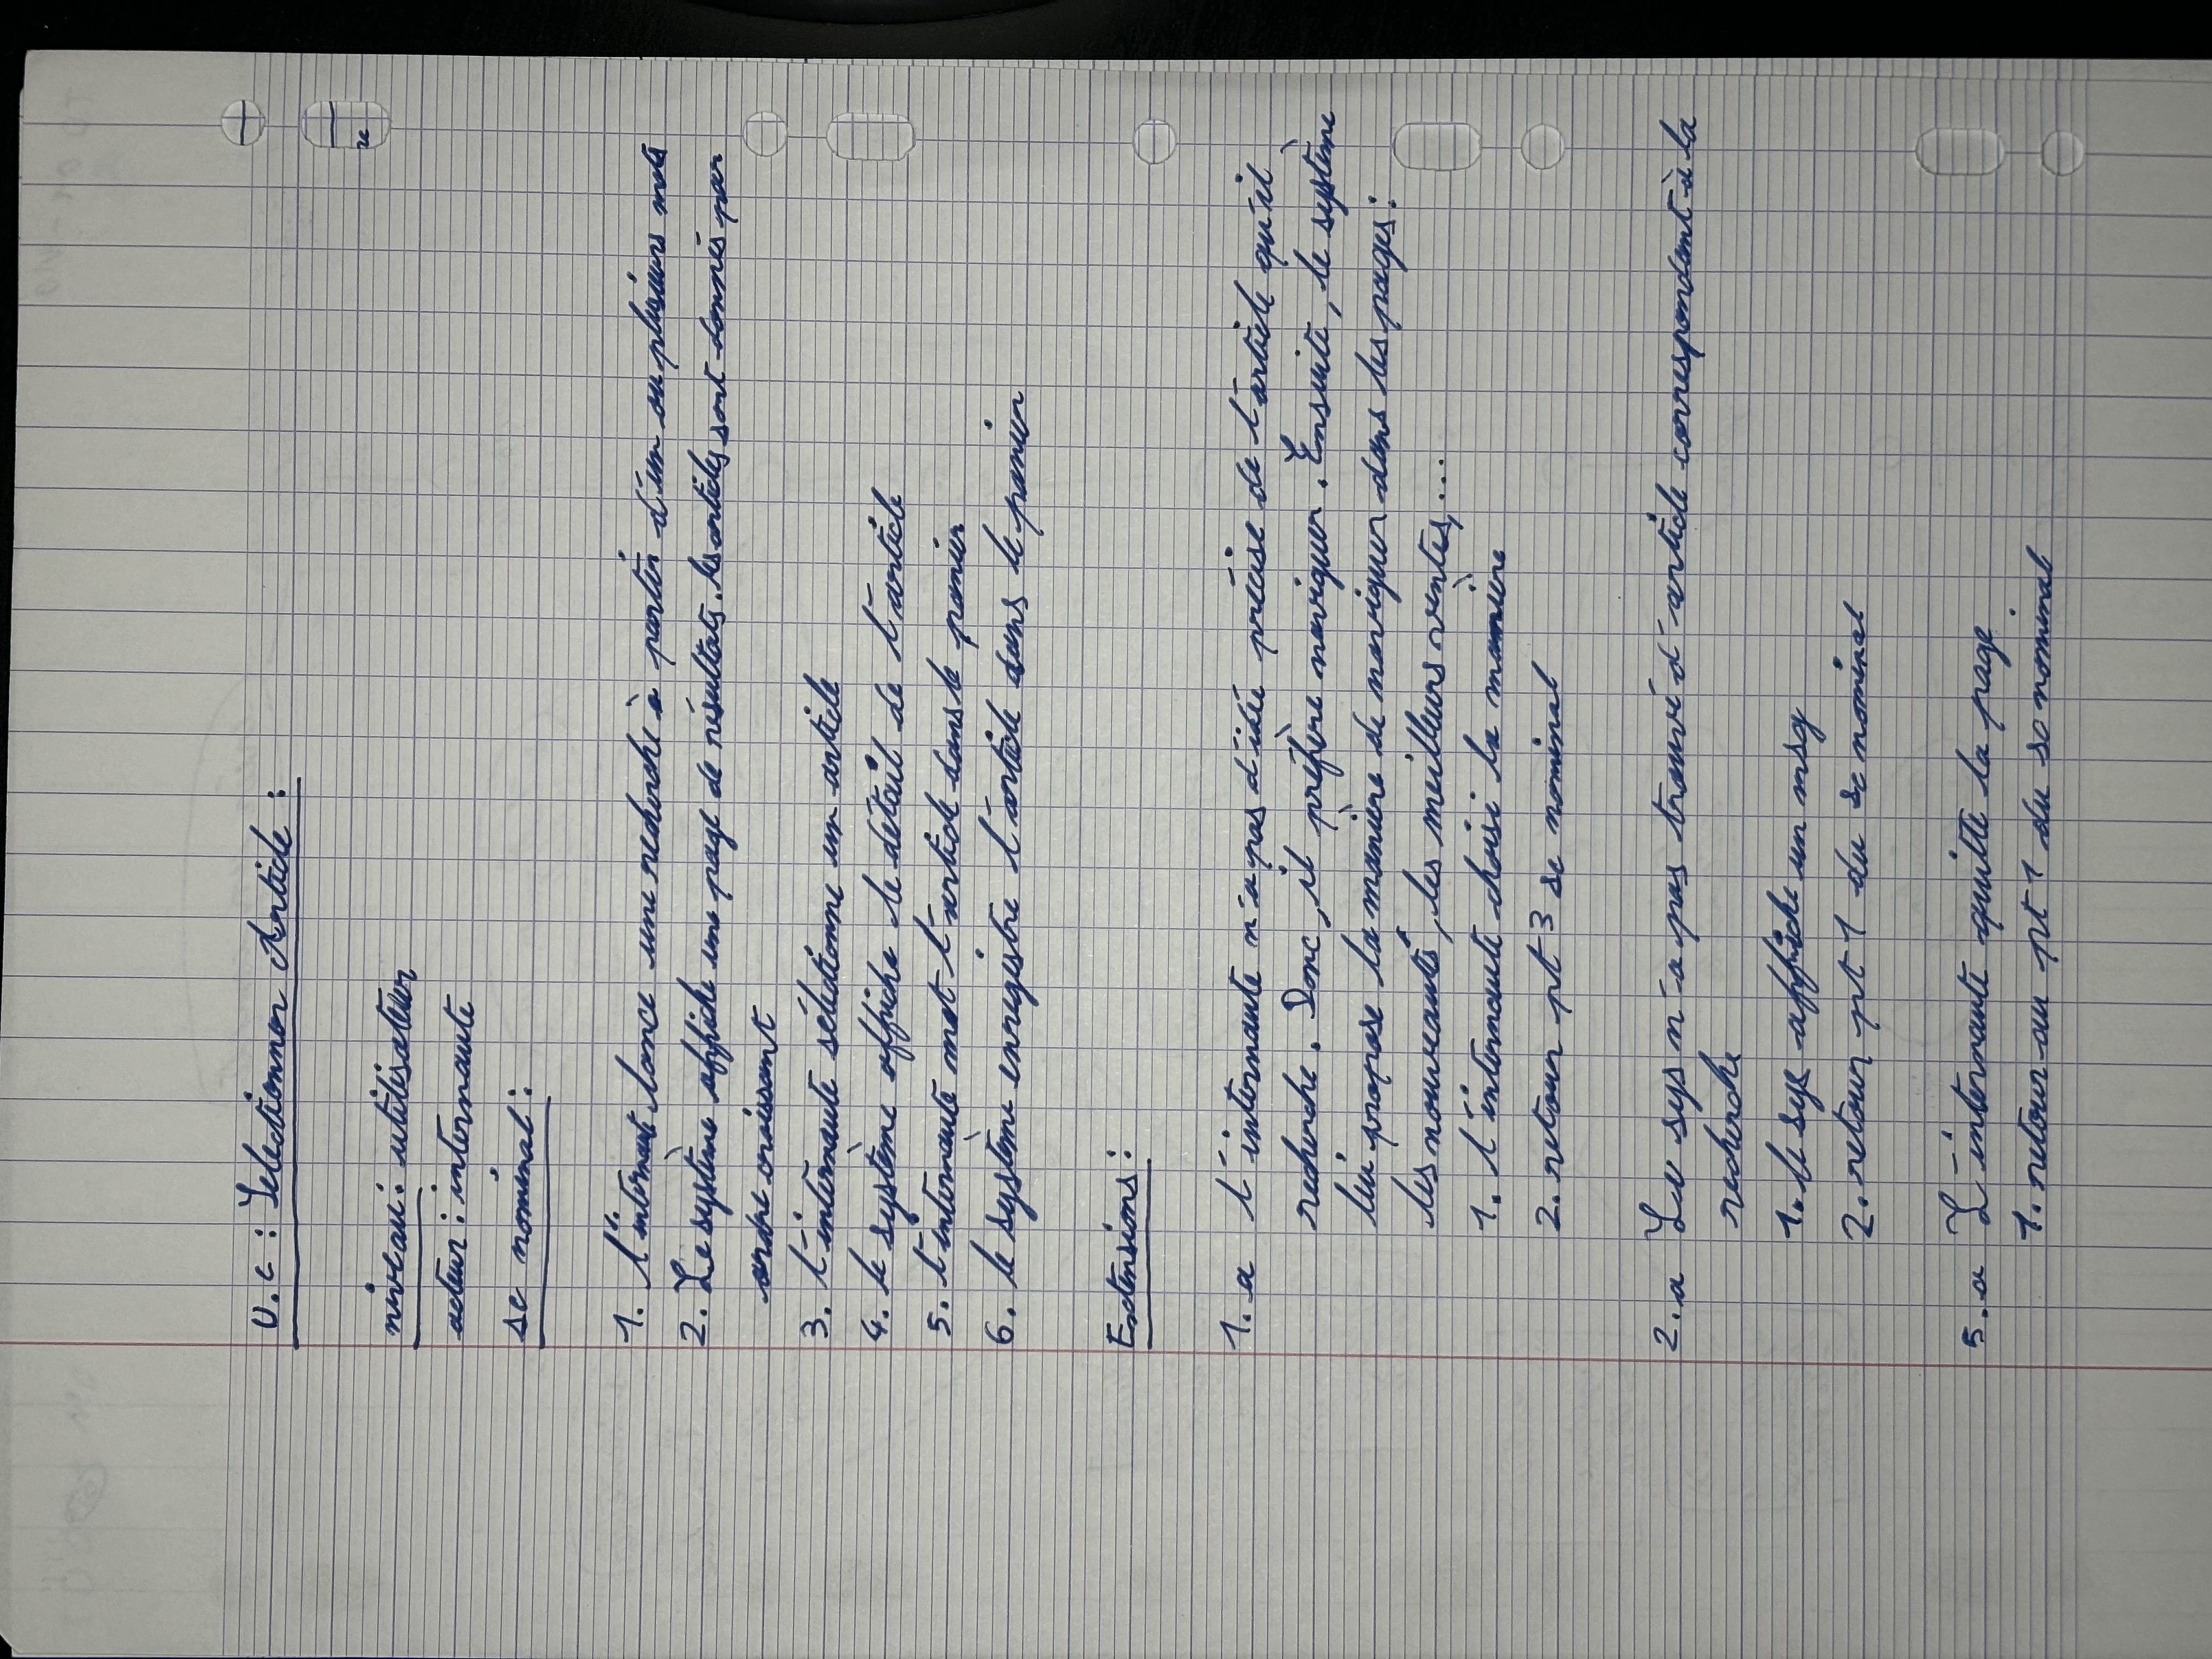 U.C : Selectionner Article :
niveau : utilisateur
acteur : internaute
sc nominal :
1. l'internaute lance une recherche à partir d'un ou plusieurs mots
2. Le système affiche une page de résultats. les articles sont donnés par
ordre croissant
3. l'internaute sélectionne un article
4. le système affiche le détail de l'article
5. l'internaute met l'article dans le panier
6. le système enregistre l'article dans le panier
Extensions :
1. a l'internaute n'a pas d'idée précise de l'article qu'il
recherche. Donc, il préfère naviguer. Ensuite, le système
lui propose la manière de naviguer dans les pages :
les nouveautés, les meilleurs ventes, ...
1. l'internaute choisi la manière
2. retour pt 3 sc nominal
2. a Le sys n'a pas trouvé d'article correspondant à la
recherche
1. le sys affiche un msg
2. retour pt 1 du sc nominal
5. a L'internaute quitte la page
1. retour au pt 1 du sc nominal